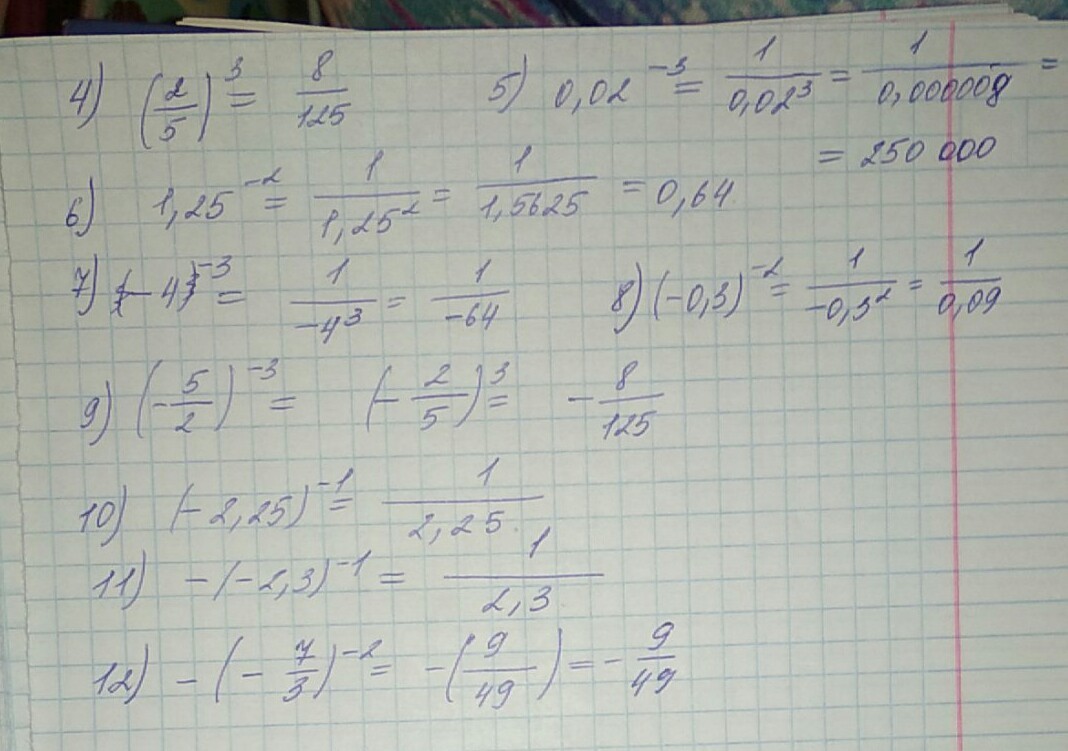 4) (2/5)^3 = 8/125 5) 0,02^-3 = 1/0,02^3 = 1/0,000008 =
= 250 000
6) 1,25^-2 = 1/1,25^2 = 1/1,5625 = 0,64
7) (-4)^-3 = 1/-4^3 = 1/-64 8) (-0,3)^-2 = 1/-0,3^2 = 1/0,09
9) (-5/2)^-3 = (-2/5)^3 = -8/125
10) (-2,25)^-1 = 1/2,25
11) -(-2,3)^-1 = 1/2,3
12) -(-7/3)^-2 = -(9/49) = -9/49